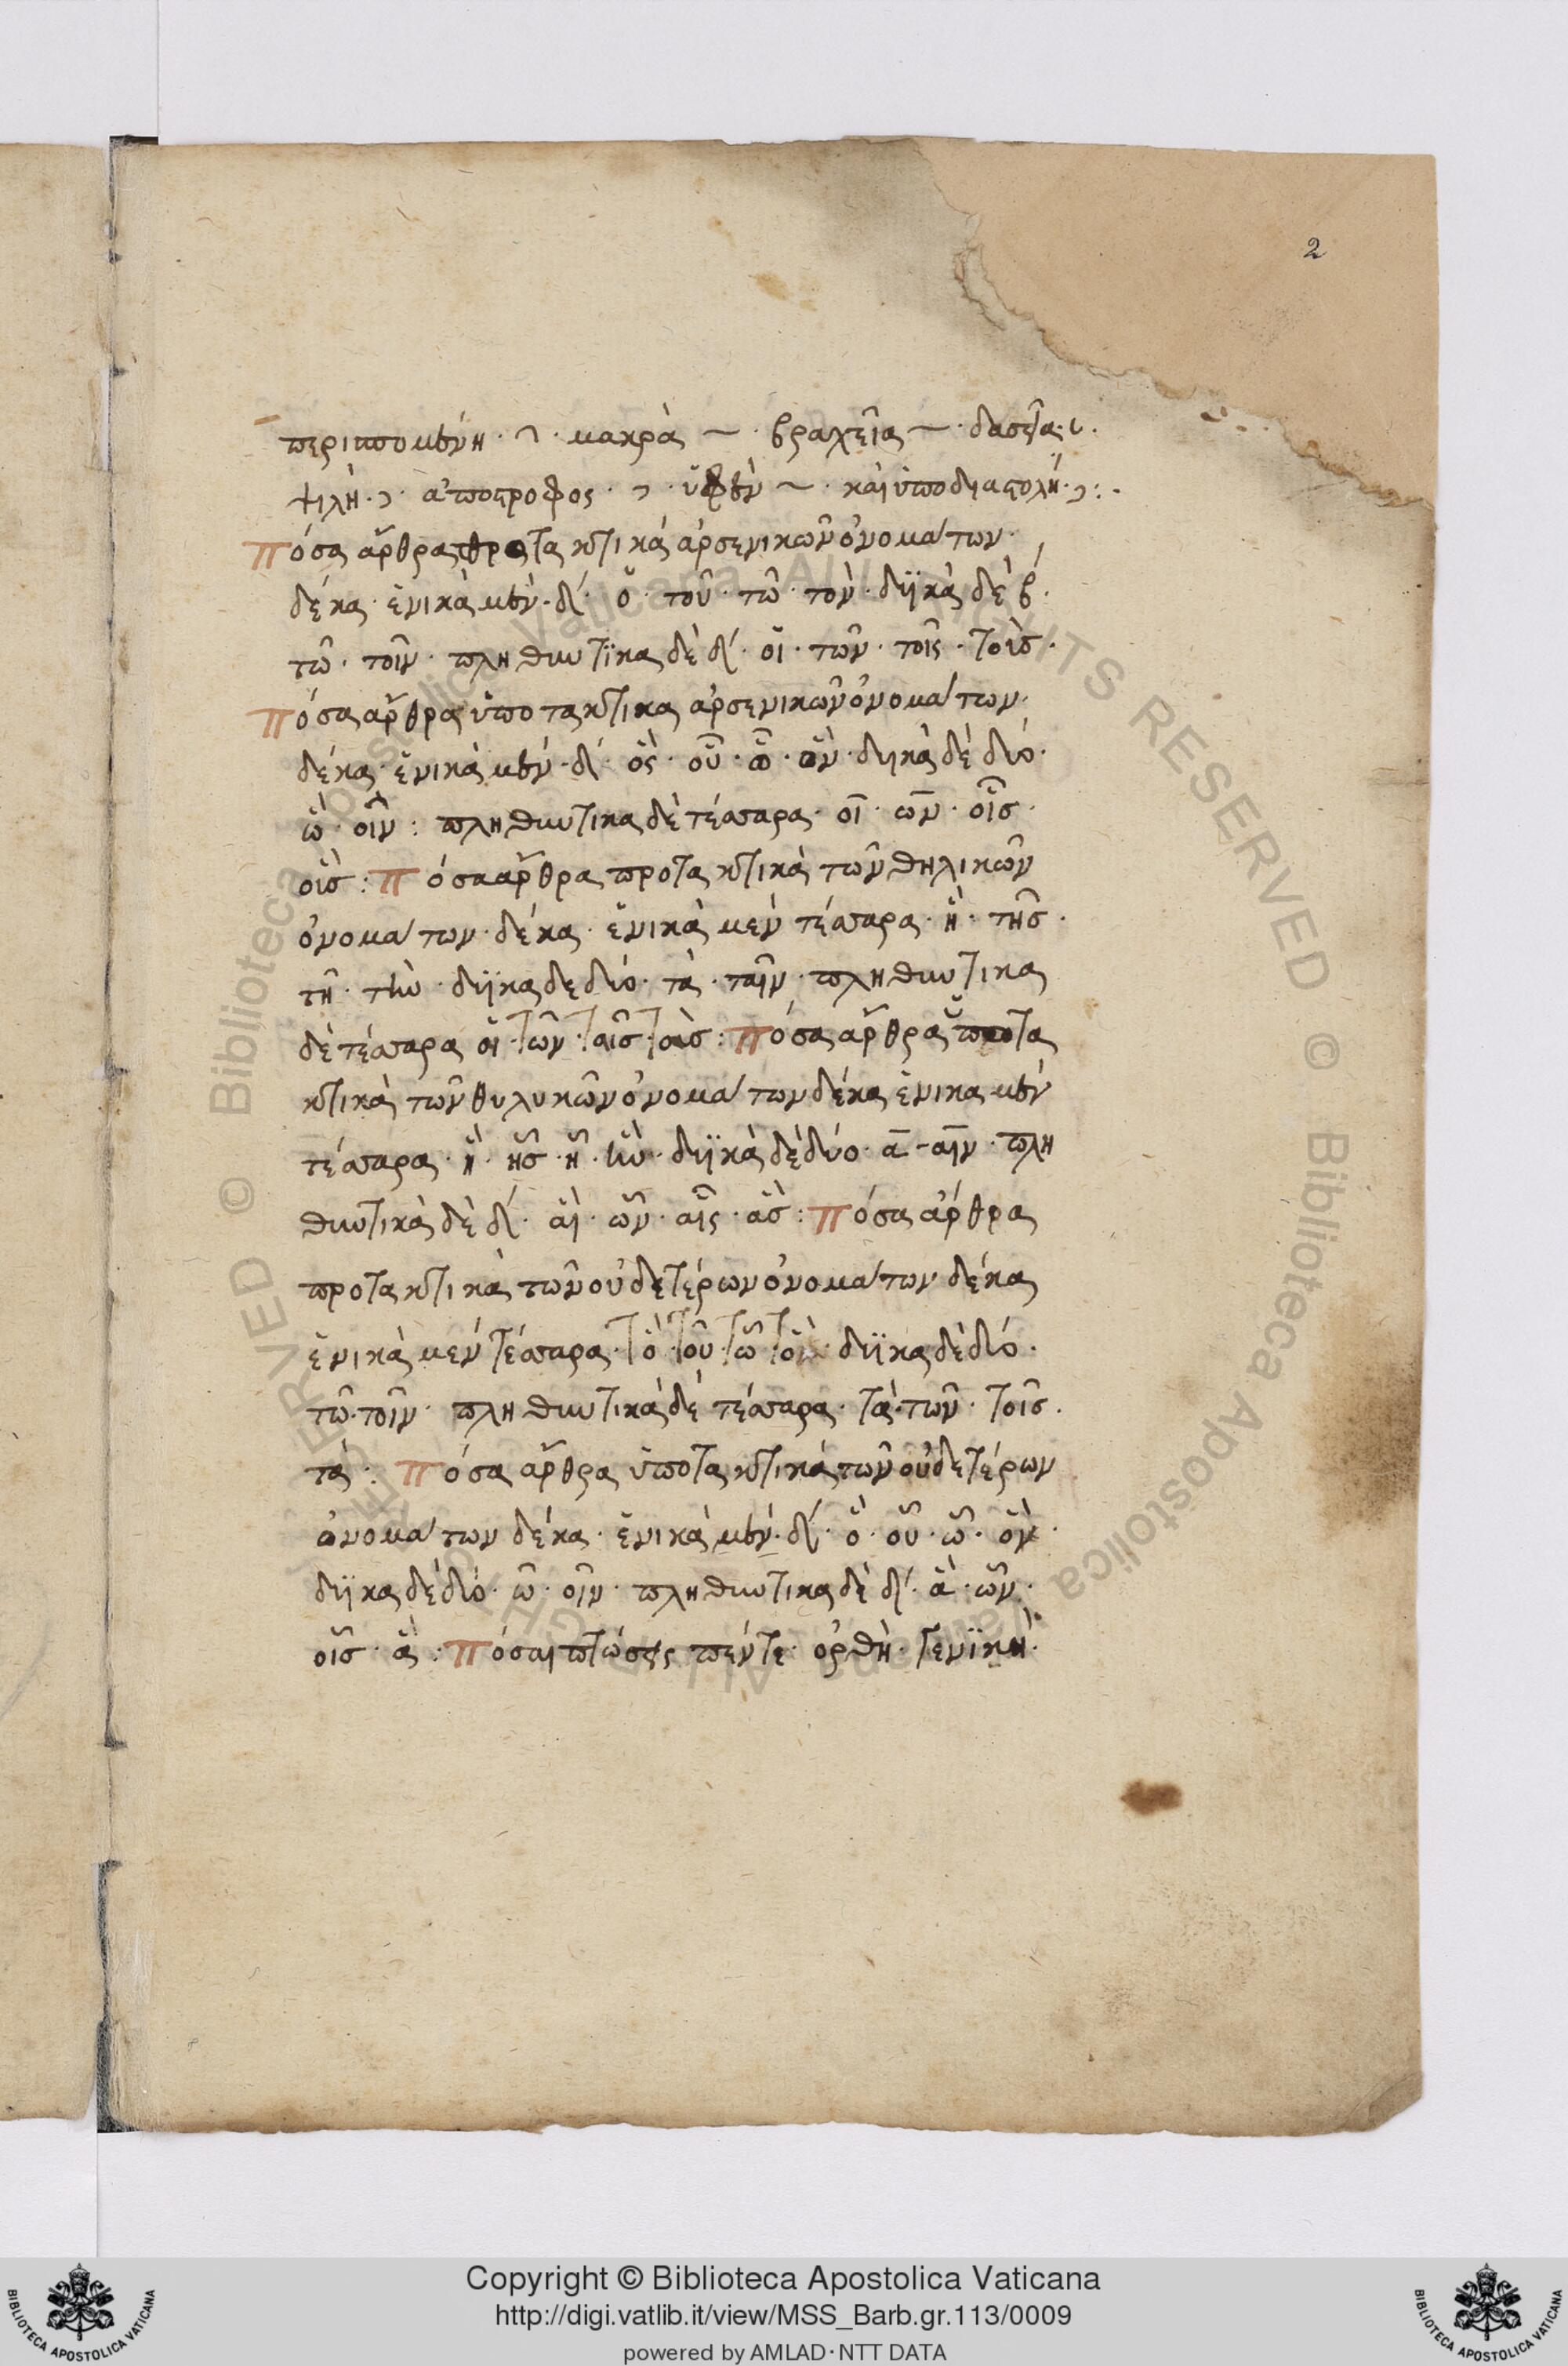 2
περισπομένη · ῀ · μακρὰ – · βραχεῖα ⏑ · δασεῖα · ῾ ·
ψιλὴ · ᾿ · ἀπόστροφος · ᾿ · ὑφὲν ‿ · καὶ ὑποδιαστολή · , : ·
πόσα ἄρθρα προτακτικά ἀρσενικῶν ὀνομάτων ·
δέκα · ἑνικὰ μὲν · δ΄ · ὁ · τοῦ · τῶ · τὸν · δϊκὰ δὲ β΄ ·
τῶ · τοῖν · πληθυντϊκα δὲ δ΄ · οἱ · τῶν · τοῖς · τοὺσ ·
πόσα ἄρθρα ὑποτακτικα ἀρσενικῶν ὀνομάτων ·
δέκα · ἑνικὰ μὲν · δ΄ · ὃς · οὗ · ὧ · ὃν · δυικὰ δὲ δύο ·
ὣ · οἷν : πληθυντικα δὲ τέσσαρα · οἱ · ων · οἷσ ·
οὓσ : πόσα ἄρθρα προτακτικὰ τῶν θηλικῶν
ὀνομάτων · δέκα · ἑνικὰ μεν τέσσαρα · ἡ · τῆσ ·
τῆ · τὴν · δυϊκα δε δύο · τὰ · ταῖν · πληθυντικα
δὲ τέσσαρα αἱ · τῶν · ταῖσ · τὰσ : πόσα ἄρθρα ὑποτα
κτικὰ τῶν θυλυκῶν ὀνομάτων δέκα ἑνικα μέν
τέσσαρα · ἣ · ἧσ · ἧ · ἣν · δυϊκὰ δὲ δύο · α – αιν · πλη
θυντικὰ δὲ δ΄ · αἳ · ὧν · αἷς · ἃσ : πόσα ἄρθρα
προτακτικὰ τῶν οὐδετέρων ὀνομάτων δέκα
ἑνικὰ μεν τέσσαρα · τὸ · τοῦ · τῶ · τὸ · δυϊκα δὲ δύο ·
τῶ · τοῖν · πληθυντικὰ δὲ τέσσαρα · τὰ · τῶν · τοῖσ ·
τὰ : πόσα ἄρθρα ὑποτακτικὰ τῶν οὐδετέρων
ὀνομάτων δέκα · ἑνικὰ μὲν · δ΄ · ὃ · οὗ · ὧ · ὃν ·
δυϊκα δὲ δύο · ὧ · οἷν · πληθυντικα δὲ δ΄ · ἃ · ὧν ·
οἷσ · ἃ : πόσαι πτώσεις πέντε · ὀρθὴ · γενϊκὴ ·
Copyright © Biblioteca Apostolica Vaticana
http://digi.vatlib.it/view/MSS_Barb.gr.113/0009
powered by AMLAD · NTT DATA